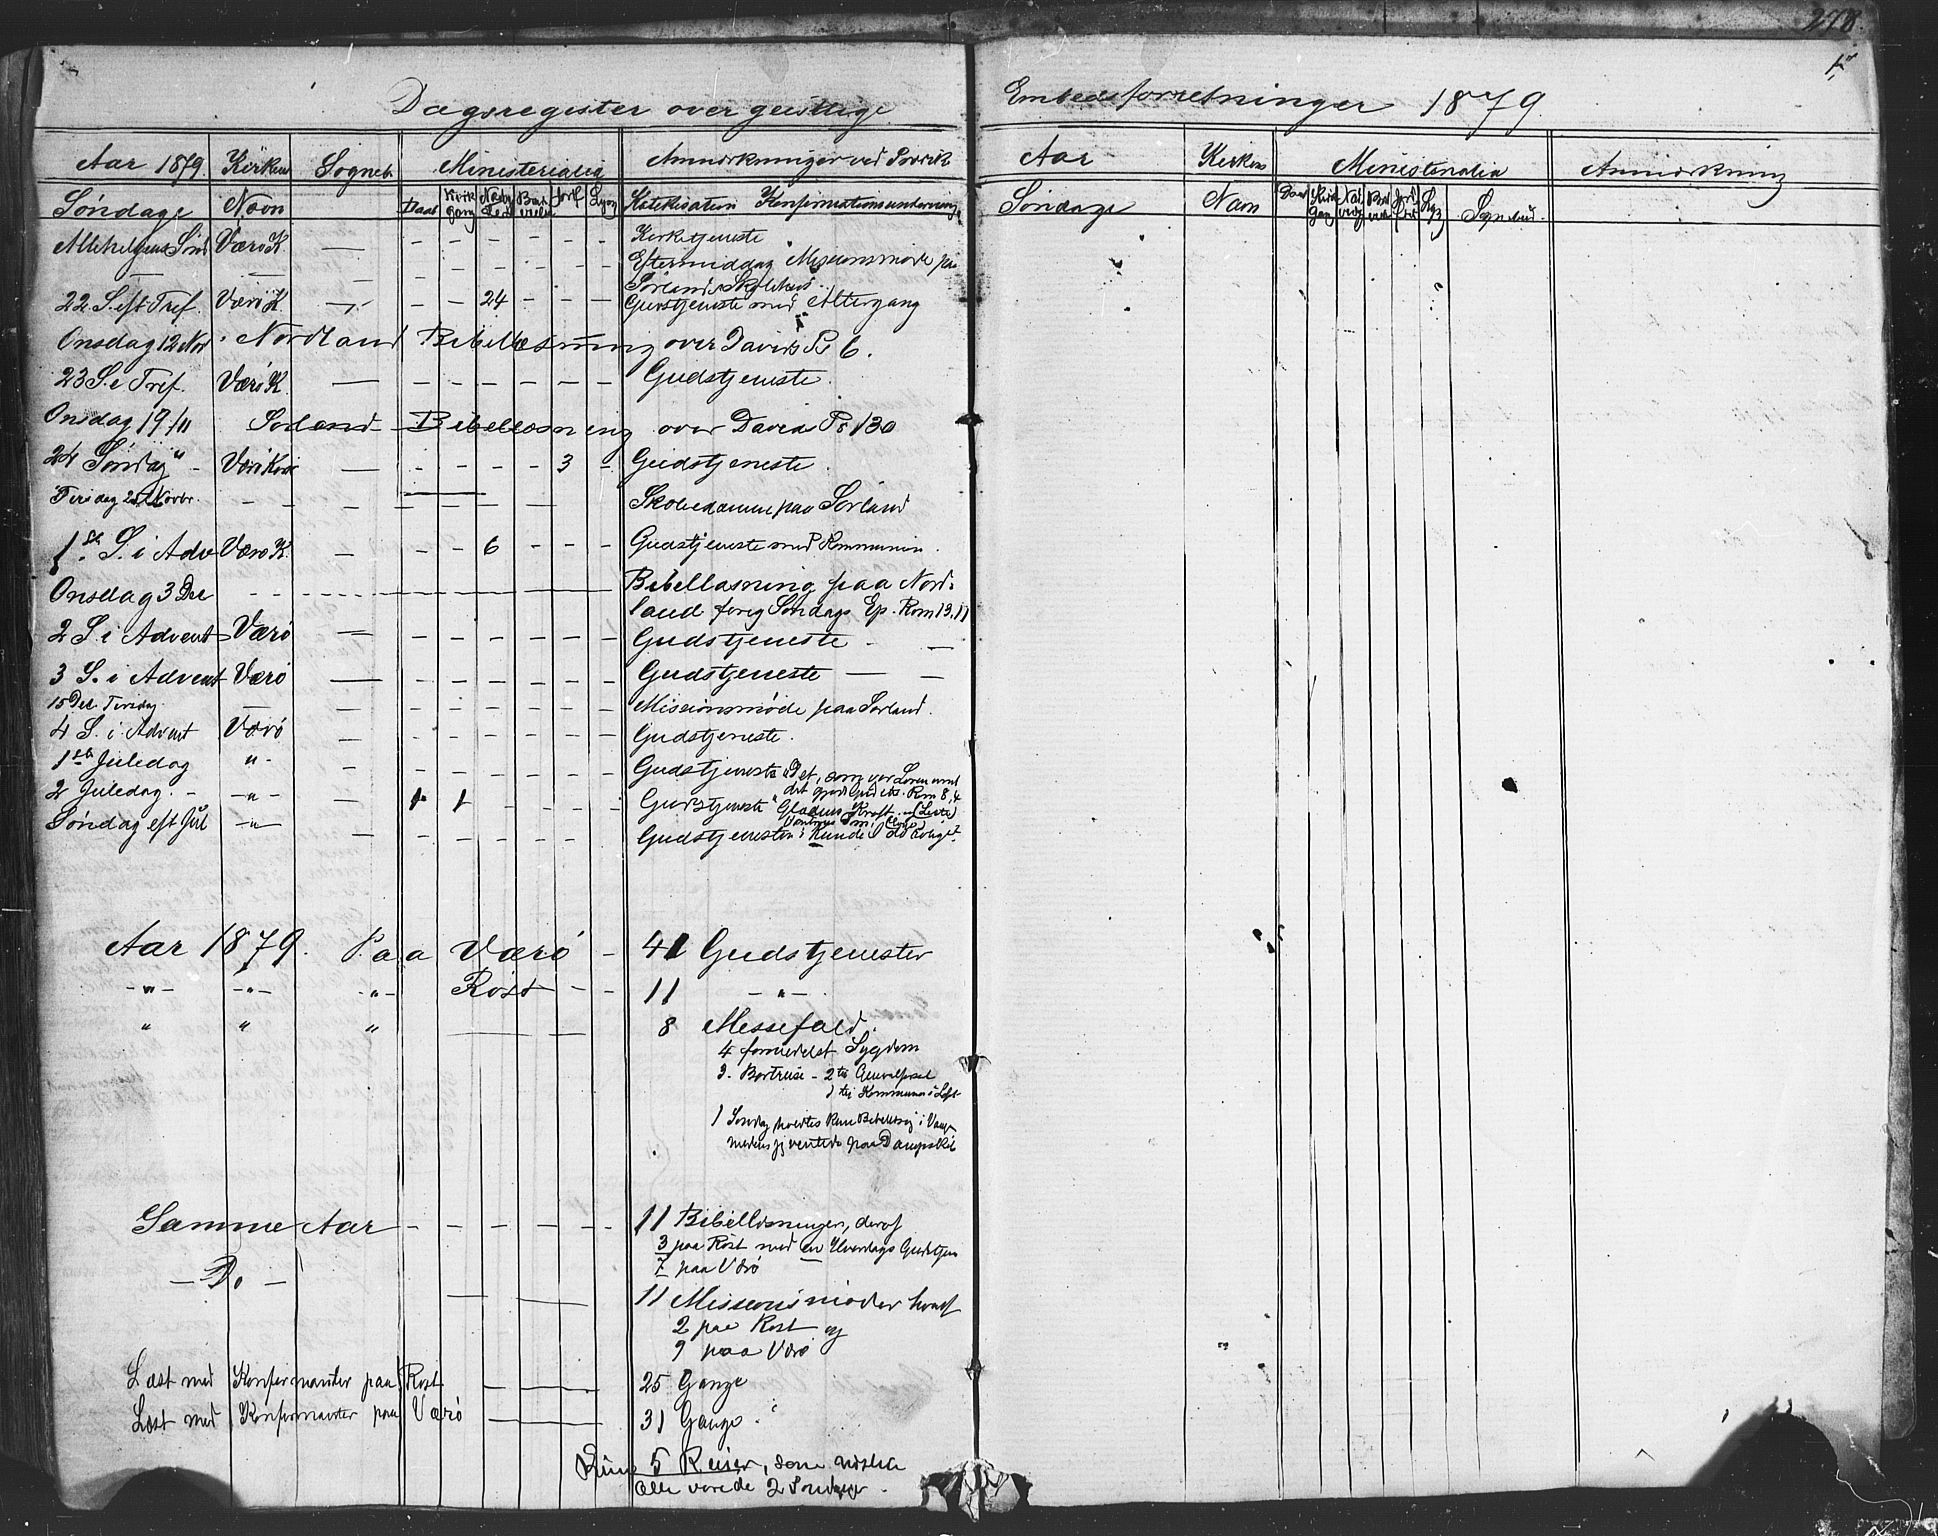 278.
Dagsregister over geistlige Embedsforretninger 1879.
Aar 1879. Kirkens Sogneb. Ministerialia Anmærkninger ved
Søndage Navn Daab Kirkgang Jordf Katekisation Konfirmationsundervisning
Allehelgens Sønd Værø K. — Kirketjeneste
Eftermiddag Missionsmøde paa
Sørlands Skolehus.
22 S. eft Tref. Værø K. — 24 Gudstjeneste med Altergang
Onsdag 12 Nov Nordland Bibellæsning over Davids Ps 6.
23 S. e Tref. Værø K. — Gudstjeneste.
Onsdag 19/11 Sørland Bibellæsning over Davids Ps 130
24 Søndag " - Værø Kirke — 3 Gudstjeneste.
Tirsdag 25 Novbr. Skoleexamen paa Sørland
1ste S. i Adv Værø K. — 6 Gudstjeneste med Kommunion.
Onsdag 3 Dec Bibellæsning paa Nord-
land foreg Søndags Ep. Rom 13.11
2 S. i Advent Værø — Gudstjeneste —
3 S. i Advent Værø — Gudstjeneste —
15 Dec Tirsdag — Missionsmøde paa Sørland.
4 S. i Advent Værø — Gudstjeneste.
1ste Juledag " - Gudstjeneste "Det, som var Loven umul
det gjorde Gud etc. Rom 8,4
2 Juledag. - — " — 1 1 Gudstjeneste "Glædens Kraft"
Søndag eft Jul — " — Gudstjenesten i
Aar 1879. Paa Værø - 41 Gudstjenester
- " - - " - - " - Røst - - 11 - " -
" " " 8 Messefald.
4 formedelst Sygdom
3. Bortreise - 2 til
1 til Kommunen i Lof
1 Søndag holdtes kun Bibellæsng i
medens jeg ventede paa Dampskib
Samme Aar - - - - - 11 Bibellæsninger, deraf
3 paa Røst med en Hverdags Gudstjen
7 paa Værø
— Do — 11 Missionsmøder hvoraf
2 paa Røst og
9 paa Værø
Læst med Konfirmanter paa Røst — 25 Gange
Læst med Konfirmanter paa Værø — 31 Gange
5 Reiser, som næsten
alle varede 2 Søndager.
Aar Kirkens Ministerialia Anmærkning
Søndage Navn Daab Kirkgang Sognebud.